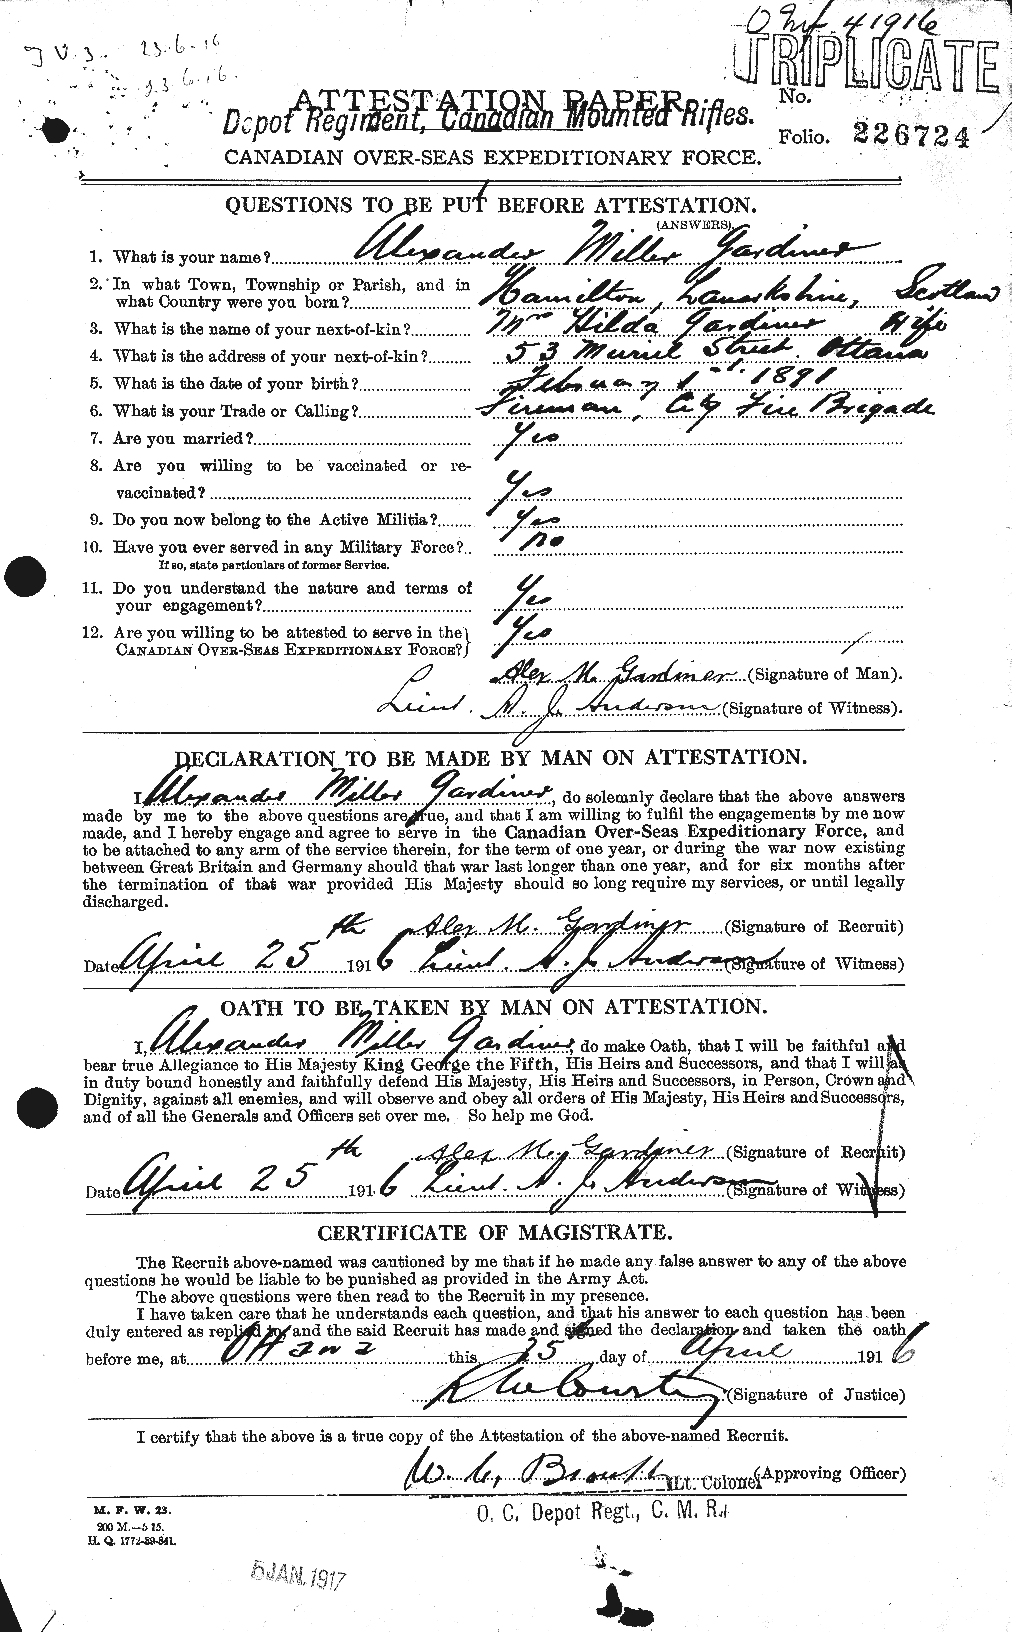 J V. 3. 23-6-16
23.6.16.
41916
TRIPLICATE
ATTESTATION PAPER.
No.
Depot Regiment, Canadian Mounted Rifles.
Folio. 226724
CANADIAN OVER-SEAS EXPEDITIONARY FORCE.
QUESTIONS TO BE PUT BEFORE ATTESTATION.
(ANSWERS).
1. What is your name? Alexander Miller Gardiner
2. In what Town, Township or Parish, and in
what Country were you born? Hamilton, Lanarkshire, Scotland
3. What is the name of your next-of-kin? Mrs Hilda Gardiner Wife
4. What is the address of your next-of-kin? 53 Muriel Street Ottawa
5. What is the date of your birth? February 1st. 1891
6. What is your Trade or Calling? Fireman, City Fire Brigade
7. Are you married? Yes
8. Are you willing to be vaccinated or re-
vaccinated? Yes
9. Do you now belong to the Active Militia? Yes
10. Have you ever served in any Military Force? no
If so, state particulars of former Service.
11. Do you understand the nature and terms of
your engagement? Yes
12. Are you willing to be attested to serve in the
CANADIAN OVER-SEAS EXPEDITIONARY FORCE? Yes
Alex M. Gardiner (Signature of Man).
Lieut. A. J. Anderson (Signature of Witness).
DECLARATION TO BE MADE BY MAN ON ATTESTATION.
I, Alexander Miller Gardiner, do solemnly declare that the above answers
made by me to the above questions are true, and that I am willing to fulfil the engagements by me now
made, and I hereby engage and agree to serve in the Canadian Over-Seas Expeditionary Force, and
to be attached to any arm of the service therein, for the term of one year, or during the war now existing
between Great Britain and Germany should that war last longer than one year, and for six months after
the termination of that war provided His Majesty should so long require my services, or until legally
discharged.
Alex M. Gardiner (Signature of Recruit)
Date April 25th 1916 Lieut. A. J. Anderson (Signature of Witness)
OATH TO BE TAKEN BY MAN ON ATTESTATION.
I, Alexander Miller Gardiner, do make Oath, that I will be faithful and
bear true Allegiance to His Majesty King George the Fifth, His Heirs and Successors, and that I will as
in duty bound honestly and faithfully defend His Majesty, His Heirs and Successors, in Person, Crown and
Dignity, against all enemies, and will observe and obey all orders of His Majesty, His Heirs and Successors,
and of all the Generals and Officers set over me. So help me God.
Alex M. Gardiner (Signature of Recruit)
Date April 25th 1916 Lieut. A. J. Anderson (Signature of Witness)
CERTIFICATE OF MAGISTRATE.
The Recruit above-named was cautioned by me that if he made any false answer to any of the above
questions he would be liable to be punished as provided in the Army Act.
The above questions were then read to the Recruit in my presence.
I have taken care that he understands each question, and that his answer to each question has been
duly entered as replied to, and the said Recruit has made and signed the declaration and taken the oath
before me, at Ottawa this 25th day of April 1916
(Signature of Justice)
I certify that the above is a true copy of the Attestation of the above-named Recruit.
W. C. Lt. Colonel (Approving Officer)
O. C. Depot Regt., C. M. R.
M. F. W. 23.
200 M.—5 15.
H. Q. 1772-39-841.
5 JAN. 1917